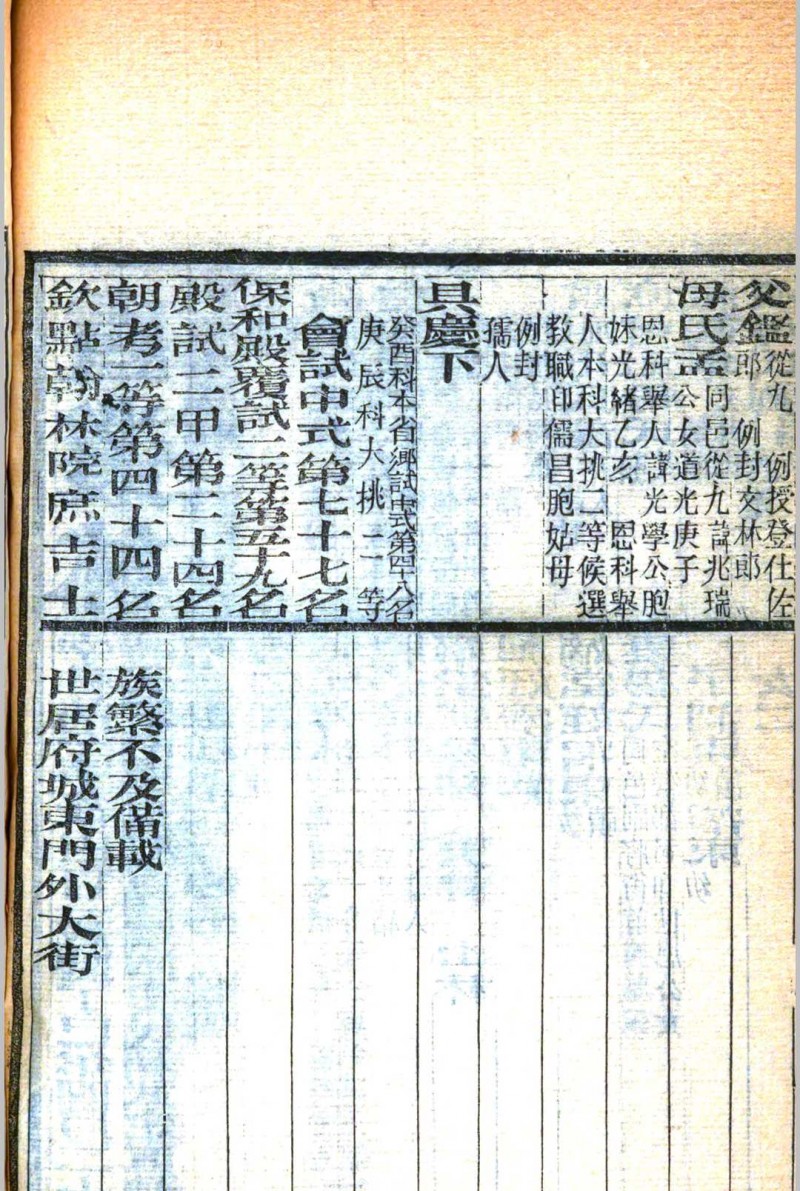 父鑑從九 例授登仕佐
郎 例封文林郎
母氏孟同邑從九諱兆瑞
公女道光庚子
恩科舉人諱光學公胞
妹光緒乙亥 恩科舉
人本科大挑二等候選
教職印儒昌胞姑母
例封
孺人
具慶下
癸酉科本省鄉試中式第四十八名
庚辰科大挑二等
會試中式第七十七名
保和殿覆試二等第五十九名
殿試二甲第二十四名
朝考一等第四十四名
欽點翰林院庶吉士
族繁不及備載
世居府城東門外大街